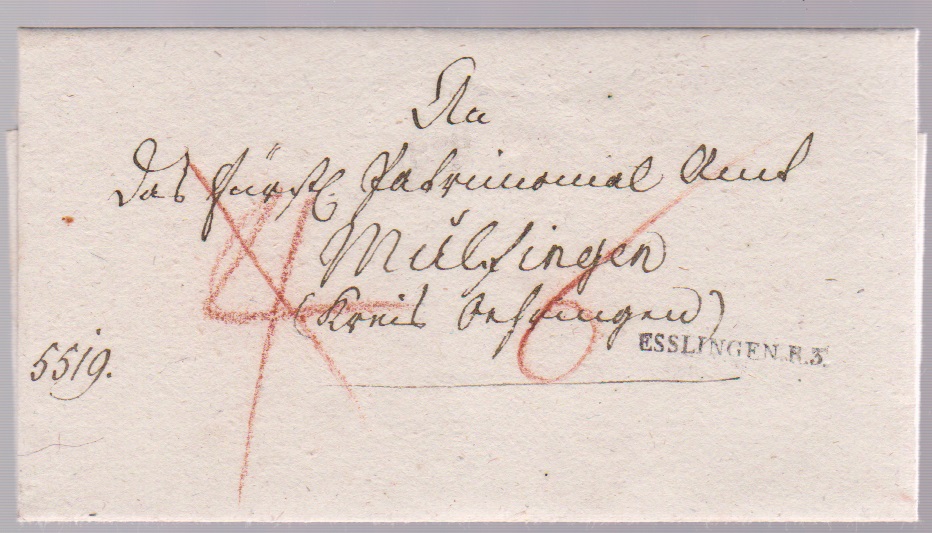 An
Das Fürstl Patrimonial Amt
Mülfingen
(Kreis Oehringen)
4
6
ESSLINGEN.R.3.
5519.